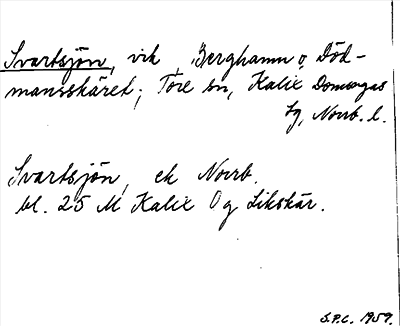 Svartsjön, vik, Berghamn o. Död-
mansskäret; Töre sn, Kalix Domsagas
tg, Norrb. l.
Svartsjön, ek Norrb.
bl. 25 M Kalix Og Likskär.
S.P.C. 1959.